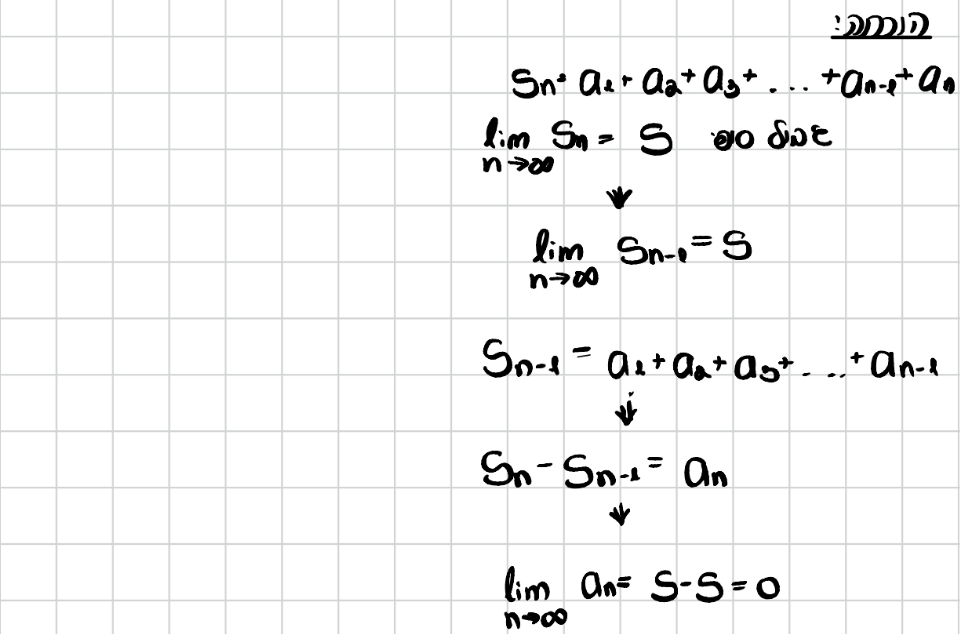 הוכחה:
Sn = a1 + a2 + a3 + ... + an-1 + an
lim n→∞ Sn = S גבול סופי
↓
lim n→∞ Sn-1 = S
Sn-1 = a1 + a2 + a3 + ... + an-1
↓
Sn - Sn-1 = an
↓
lim n→∞ an = S - S = 0